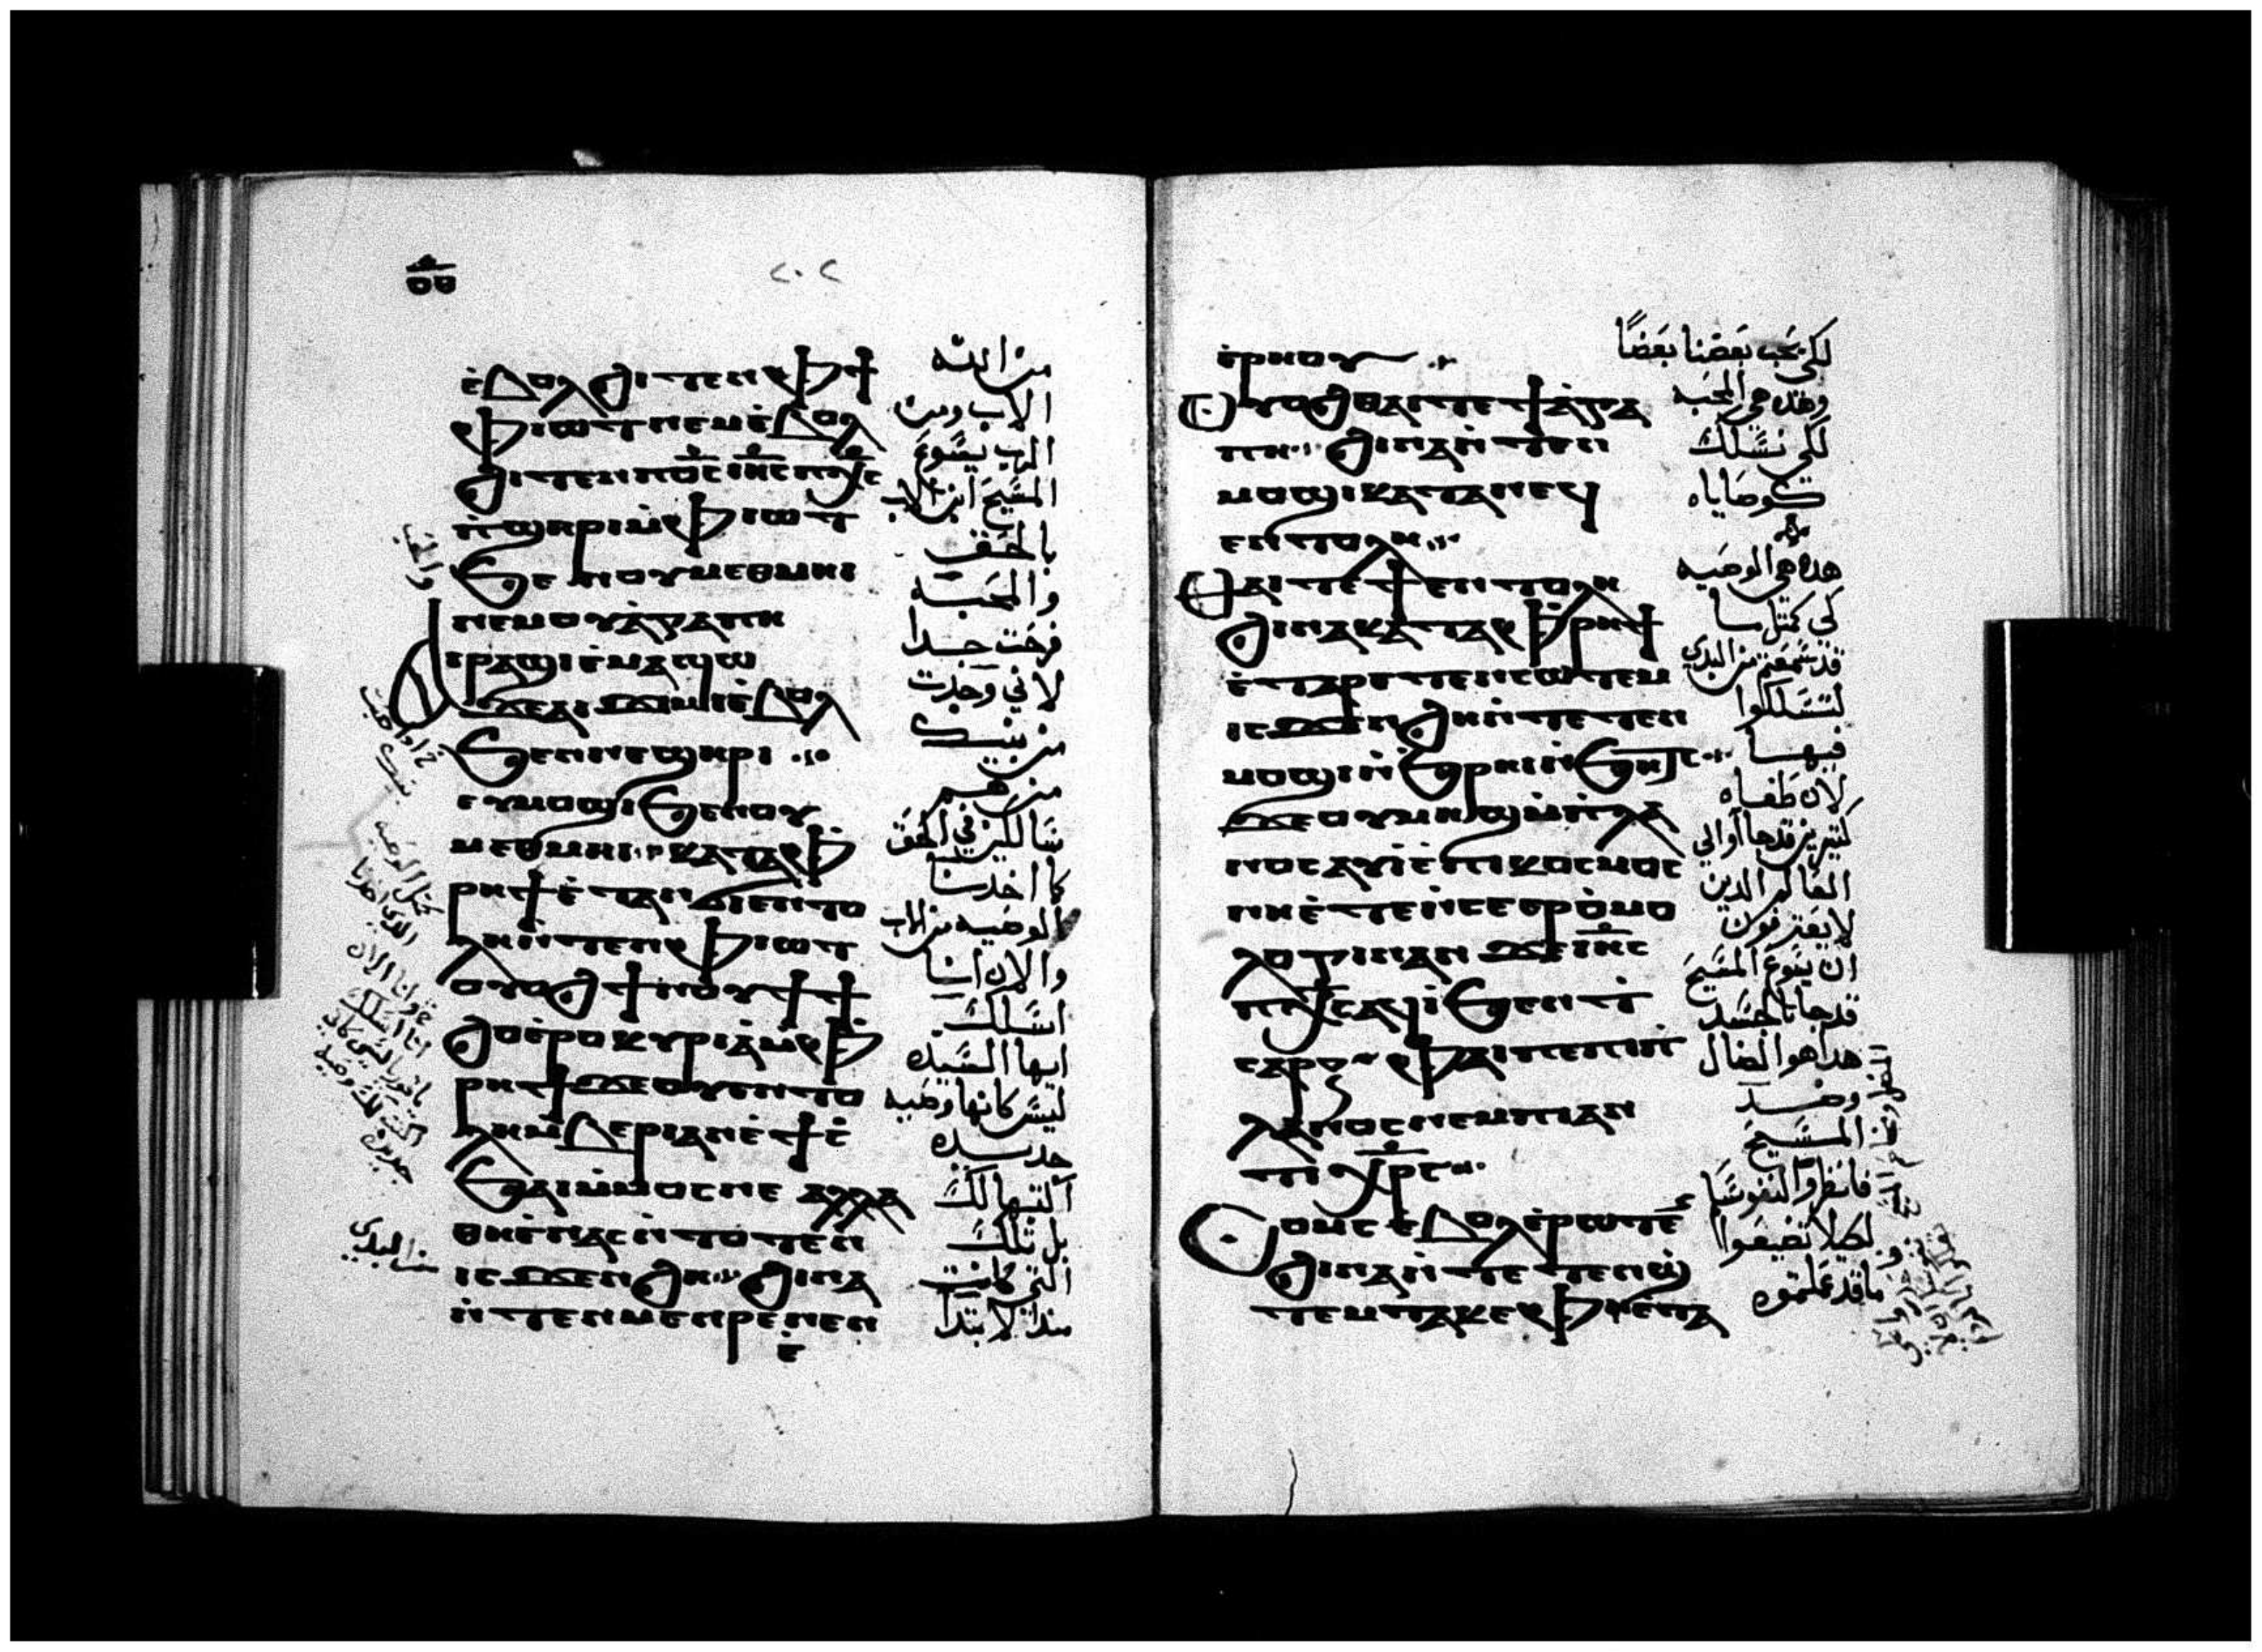 ٢٠٢
ⲉ̀ⲃⲟⲗϩⲓⲧⲉⲛⲫϯ
ⲫⲓⲱⲧⲛⲉⲙⲉ̀ⲃⲟⲗ
ϩⲓⲧⲉⲛⲡⲟ̅ⲥ̅ⲓⲏ̅ⲥ̅ⲡⲭ̅ⲥ̅
ⲡ̀ϣⲏⲣⲓⲙ̀ⲫⲓⲱⲧ
ϧⲉⲛⲟⲩⲙⲉⲑⲙⲏⲓ
ⲛⲉⲙⲟⲩⲁ̀ⲅⲁⲡⲏ
ⲁⲓⲣⲁϣⲓⲉ̀ⲙⲁϣⲱ
ϫⲉⲁⲓϫⲓⲙⲓⲉ̀ⲃⲟⲗ
ϧⲉⲛⲛⲉϣⲏⲣⲓ
ⲉⲩⲙⲟϣⲓϧⲉⲛⲟⲩ
ⲙⲉⲑⲙⲏⲓ ⲕⲁⲧⲁⲫ
ⲣⲏϯⲉ̀ⲧⲁⲛϭⲓⲉⲛⲧⲟ
ⲗⲏⲛ̀ⲧⲉⲛⲫⲓⲱⲧ
ⲟⲩⲟϩϯⲛⲟⲩϯϯ
ϩⲟⲉ̀ⲣⲟⲕⲩⲣⲓⲁ̀ⲙ̀ⲫ
ⲣⲏϯϫⲉⲟⲩⲉⲛⲧⲟ
ⲗⲏⲙ̀ⲃⲉⲣⲓⲁⲛⲉ̀ϯⲥ̀
ϧⲁⲓⲙ̀ⲙⲟⲥⲛⲉ ⲁⲗⲗⲁ
ⲑⲏⲉ̀ⲛⲁⲥⲛ̀ⲧⲟⲧⲉⲛ
ⲓⲥϫⲉⲛϩⲏ ϩⲓⲛⲁ
ⲛ̀ⲧⲉⲛⲙⲉⲛⲣⲉⲛⲉⲛ
ⲉ̀
من الله
الاب ومن
الرب يسوع
المسيح ابن الاب
بالحق
والمحبه
فرحت جدا
لاني وجدت
من بنيك
من هم
سالكين في الحق
كما اخدنا
الوصيه من الاب
والان انا
اسلك
ايها السيده
ليس كانها وصيه
جديده
اكتبها لك
بل تلك
التي كانت
مند الابتدا
من البدي
ⲉ̀ⲣⲏⲟⲩ
ⲟⲩⲟϩⲑⲁⲓⲧⲉϯⲁ̀ⲅⲁ
ⲡⲏ ϩⲓⲛⲁⲛ̀ⲧⲉⲛ
ⲙⲟϣⲓⲕⲁⲧⲁⲛⲉϥ
ⲉⲛⲧⲟⲗⲏ
ⲑⲁⲓⲧⲉϯⲉⲛⲧⲟⲗⲏ
ϩⲓⲛⲁⲕⲁⲧⲁⲫⲣⲏϯ
ⲉ̀ⲧⲁⲣⲉⲧⲉⲛⲥⲱⲧⲉⲙ
ⲓⲥϫⲉⲛϩⲏⲛ̀ⲧⲉⲧⲉⲛ
ⲙⲟϣⲓⲛ̀ϧⲣⲏⲓⲛ̀ϧⲏⲧⲥ
ϫⲉⲟⲩⲙⲏϣⲙ̀ⲡⲗⲁ
ⲛⲟⲥⲁⲩⲓⲉ̀ⲡⲓⲕⲟⲥⲙⲟⲥ
ⲛⲏⲉ̀ⲧⲉⲛ̀ⲥⲉⲉⲣⲟ̀ⲙⲟ
ⲗⲟⲅⲓⲛⲁⲛ ϫⲉⲓⲏ̅ⲥ̅
ⲡⲭ̅ⲥ̅ⲁϥⲓ̀ϧⲉⲛⲧ̀
ⲥⲁⲣⲝ ⲫⲁⲓⲡⲉⲡⲓⲡ̀
ⲗⲁⲛⲟⲥⲛⲉⲙⲡⲓⲁⲛ
ⲧⲓⲭⲣ̅ⲥ̅
ⲥⲟⲙⲥ ⲉ̀ⲃⲟⲗⲉ̀ⲣⲱⲧⲉⲛ
ϩⲓⲛⲁⲛ̀ⲧⲉⲧⲉⲛϣ̀
ⲧⲉⲙⲧⲁⲕⲉⲫⲏⲉ̀ⲧⲁ
لكي نحب بعضنا بعضا
وهذه هي المحبه
لكي نسلك
كوصاياه
هده هي الوصيه
كي كمثل ما
قد سمعتم من البدي
لتسلكوا
فيها
لان طغاه
كثيرين قد جاؤا الي
العالم الدين
لا يعترفون
ان يسوع المسيح
قد جا بالجسد
هدا هو الضال
وضد
المسيح
فانظروا لنفوسكم
لكيلا تضيعوا
ما قد عملتموه